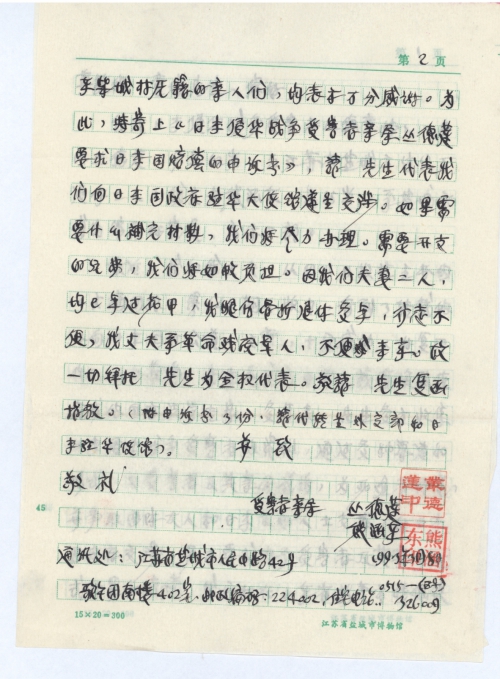 第 2 页
我们的亲人们,均表示万分感谢。为
此,特寄上《日本侵华战争受害者亲属丛德莲
要求日本国赔偿的申诉书》,靠 先生代表我
们向日本国政府驻华大使馆递呈交涉。如果需
要什么补充材料,我们将尽力办理。需要开支
的元费,我们将如数负担。因我们夫妻二人,
均已年过花甲,我腿伤骨折退休多年,行走不
便,我丈夫系革命残废军人,不便赴京。故
一切拜托 先生为全权代表。敬靠 先生复函
指教。(附申诉书3份,靠代转呈外交部和日
本驻华使馆)。 专致
敬礼
受害者亲属 丛德莲
丛德莲印
熊
东
通讯处:江苏省盐城市人民中路42号
402室 邮政编码:224002,住宅电话:0515-
326009
45
15×20=300
江苏省盐城市博物馆